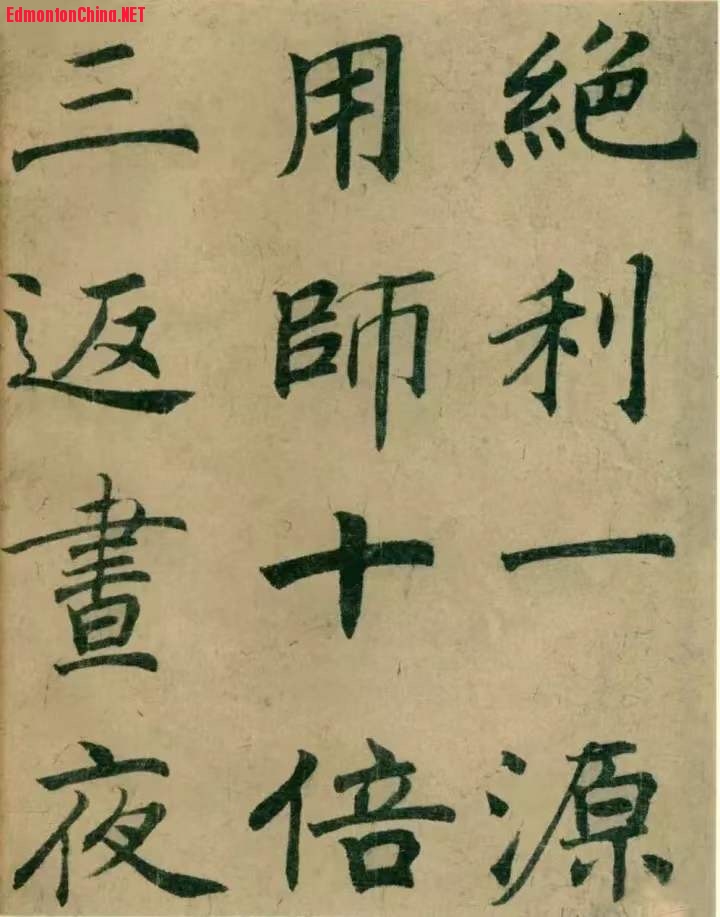 EdmontonChina.NET
絕利一源
用師十倍
三返晝夜